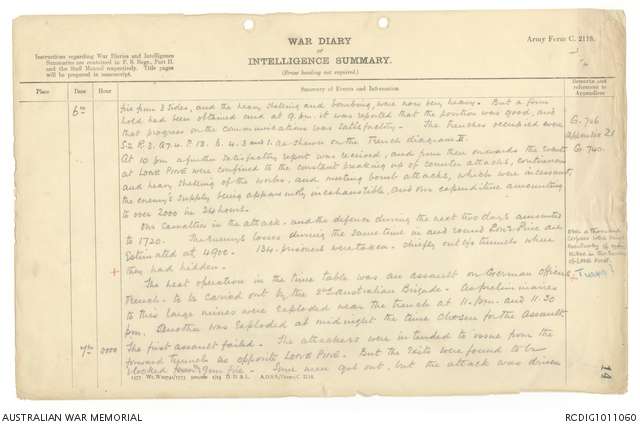 WAR DIARY
or
INTELLIGENCE SUMMARY.
(Erase heading not required.)
Army Form C. 2118.
Instructions regarding War Diaries and Intelligence
Summaries are contained in F. S. Regs., Part II.
and the Staff Manual respectively. Title pages
will be prepared in manuscript.
Place Date Hour Summary of Events and Information Remarks and references to Appendices
6th fire from 3 sides, and the heavy shelling and bombing, was now being heavy. But a firm
hold had been obtained and at 9 pm. it was reported that the position was good, and
that progress on the communications was satisfactory. The trenches occupied were
52. P. 3. A7. 4. P. 13. 6. 4. 3 and 1. as shown on the Trench diagram II.
G. 706
Appendix 21
G. 740.
At 10 pm a further satisfactory report was received, and from then onwards the events
at Lone Pine were confined to the constant breaking up of counter attacks, continuous
and heavy shelling of the works, and meeting bomb attacks, which were incessant,
the enemy's supply being apparently inexhaustible, and our expenditure amounting
to over 2000 in 24 hours.
Our casualties in the attack, and the defence during the next two days amounted
to 1720. The Enemy's losses during the same time in and round Lone Pine are
estimated at 4900. 134 prisoners were taken - chiefly out of tunnels where
they had hidden.
over a thousand
corpses were found
of LONE PINE.
Turks?
+ The next operation in the time table was an assault on German Officers
Trench, to be carried out by the 2nd Australian Brigade. As preliminaries
to this large mines were exploded near the trench at 11. pm. and 11.30
pm. Another was exploded at midnight the time chosen for the assault.
7th 0000 The first assault failed. The attackers were intended to issue from the
forward tunnels as opposite Lone Pine. But the exits were found to be
blocked from gun fire. Some men got out, but the attack was driven
14
1577 Wt. W10791/1773 500,000 1/15 D. D. & L. A.D.S.S./Forms/C. 2118.
AUSTRALIAN WAR MEMORIAL
RCDIG1011060